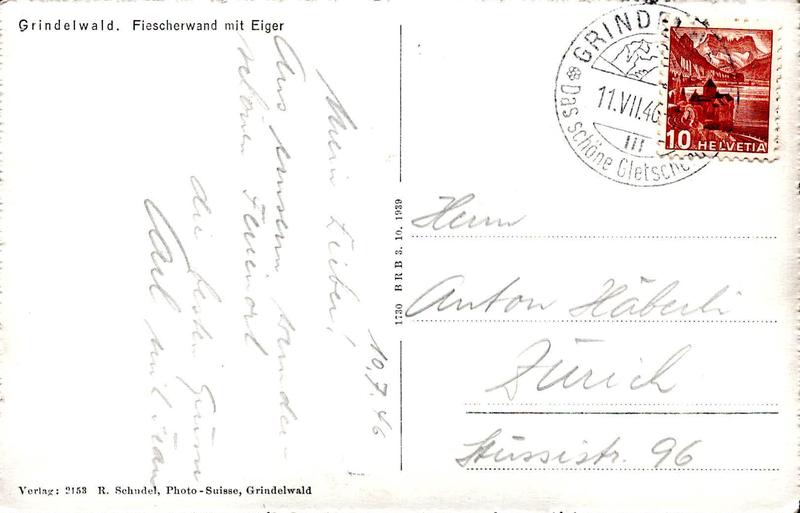 Grindelwald. Fiescherwand mit Eiger
10.7.46
Mein Lieber!
Aus unserm wunder-
schönen Ferienort
die besten Grüsse
Karl und Frau
1730 BRB 3. 10. 1939
GRINDEL
11.VII.46
Das schöne Gletscherd
III
10 HELVETIA
Herrn
Anton Häberli
Zürich
Stüssistr. 96
Verlag: 2153 R. Schudel, Photo-Suisse, Grindelwald